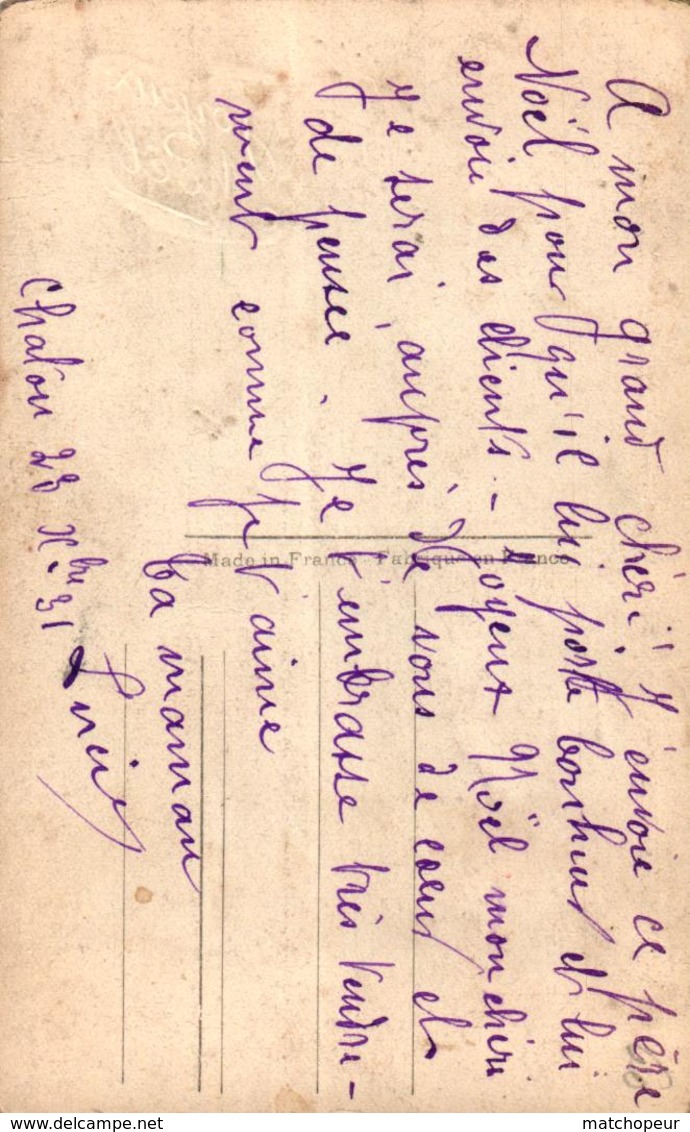 A mon grand chéri ! J'envoie ce père
Noël pour qu'il lui porte bonheur et lui
envoie des clients. - Joyeux Noël mon chéri
Je serai auprès de vous de coeur et
de pensée. Je t'embrasse très tendre-
ment comme je t'aime
ta maman
Lucie
Chatou 23 Xbre 31
Made in France - Fabriqué en France
Joyeux
Noël
matchopeur